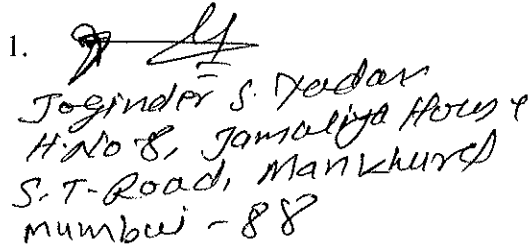 1.
Joginder S. Yadav
H.No-8, Jamaliya House
S.T-Road, Mankhurd
Mumbai - 88